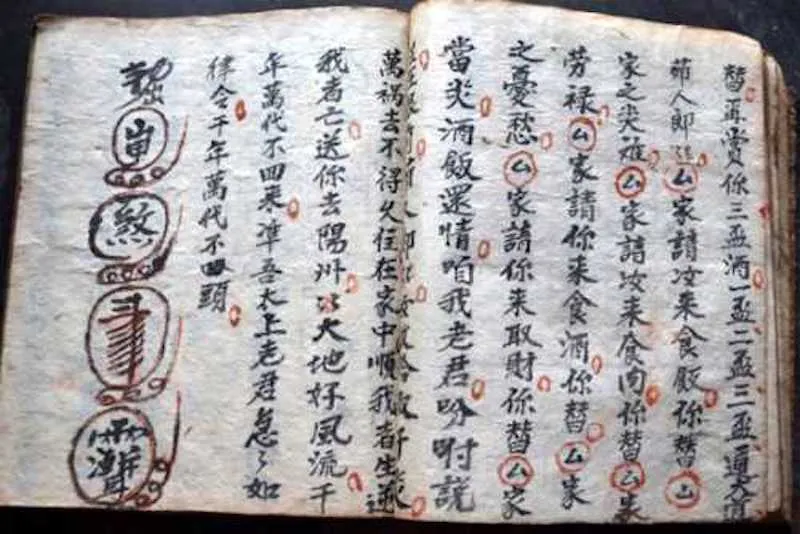 替再賞你三盃酒一盃二盃三盃通大道
茆人郎厶家請汝来食飯你替厶
家之災难厶家請汝来食肉你替厶家
劳禄厶家請你来食酒你替厶家
之憂愁厶家請你来取財你替厶家
當災酒飯還情咱我老君吩咐説
萬禍去不得久住在家中順我者生逆
我者亡送你去陽州大地好風流千
年萬代不回来準吾太上老君急々如
律令千年萬代不回頭
煞